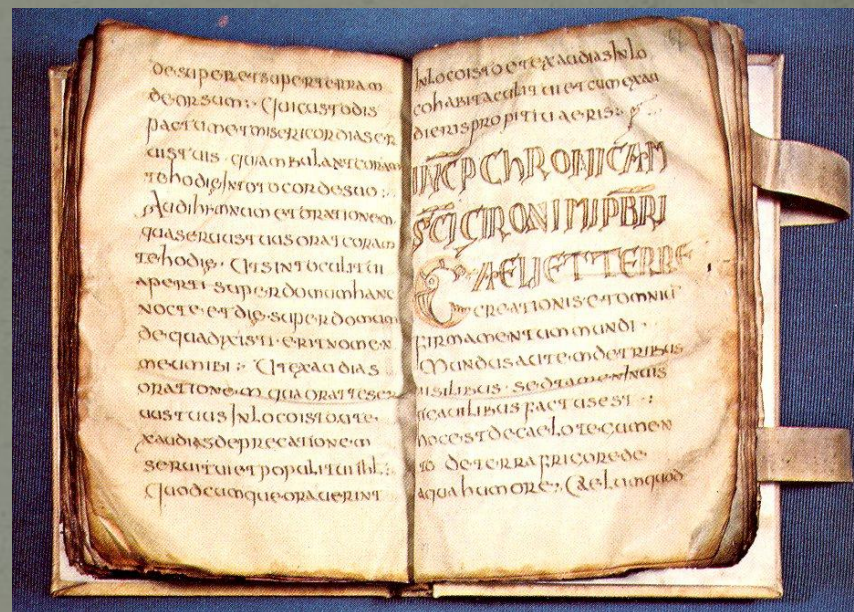 desuper et super terram
deorsum : Qui custodis
pactum et misericordias er
uis tuis · qui ambulant coram
te hodie in toto corde suo :
Audi hemnum et orationem
qua seruus tuus orat coram
te hodie · Ut sint oculi tui
aperti super domum hanc
nocte et die · super domum
de qua dixisti · erit nomen
meum ibi : Ut exaudias
orationem qua orat te ser
uus tuus in loco isto ut e
xaudias deprecationem
serui tui et populi tui ihl :
Quodcumque orauerint
in loco isto et exaudias in lo
co habitaculi tui et cum exau
dieris propitiu aeris :
INCP CHRONICAM
SCI GIRONIMI PBRI
CAELI ET TERRE
creationis et omniū
firmamentum mundi ·
Mundus autem de tribus
uisilibus · sed tamen inuis
ticauilibus factus est :
hoc est de caelo tecumen
to de terra fricore de
aqua humore : Caelum quod